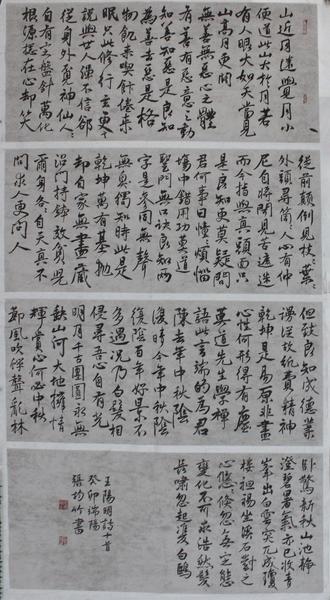 山近月遠覺月小
便道此山大於月若
有人眼大如天當見
山高月更闊
無善無惡心之體
有善有惡意之動
知善知惡是良知
為善去惡是格
物飢來喫飯倦來
眠只此修行玄更玄
說與世人渾不信卻
從身外覓神仙人々
自有定盤針萬化
根源總在心卻笑
從前顛倒見枝々葉々
外頭尋箇々人心有仲
尼自將聞見苦遮迷
而今指與真頭面只
是良知更莫疑問
君何事日憧々煩惱
場中錯用功莫道
聖門無口訣良知兩
字是參同無聲
無臭獨知時此是
乾坤萬有基拋
卻自家無盡藏
沿門持缽效貧兒
爾身各各自天真不
用求人更問人
但致良知成德業
謾從故紙費精神
乾坤是易原非畫
心性何形得有塵
莫道先生學禪
語此言端的為君
陳去年中秋陰
復晴今年中秋陰
復陰百年好景不
多遇況乃白髮相
侵尋吾心自有光
明月千古團圓永無
缺山河大地擁清
輝賞心何必中秋
節風吹蟬聲亂林
卧驚新秋山池靜
澄碧暑氣亦已收青
峯出白雲突兀成瓊
樓袒裼坐溪石對之
心悠悠倏忽無定態
變化不可求浩然發
長嘯忽起雙白鷗
王陽明詩十首
癸卯端陽
張均竹書